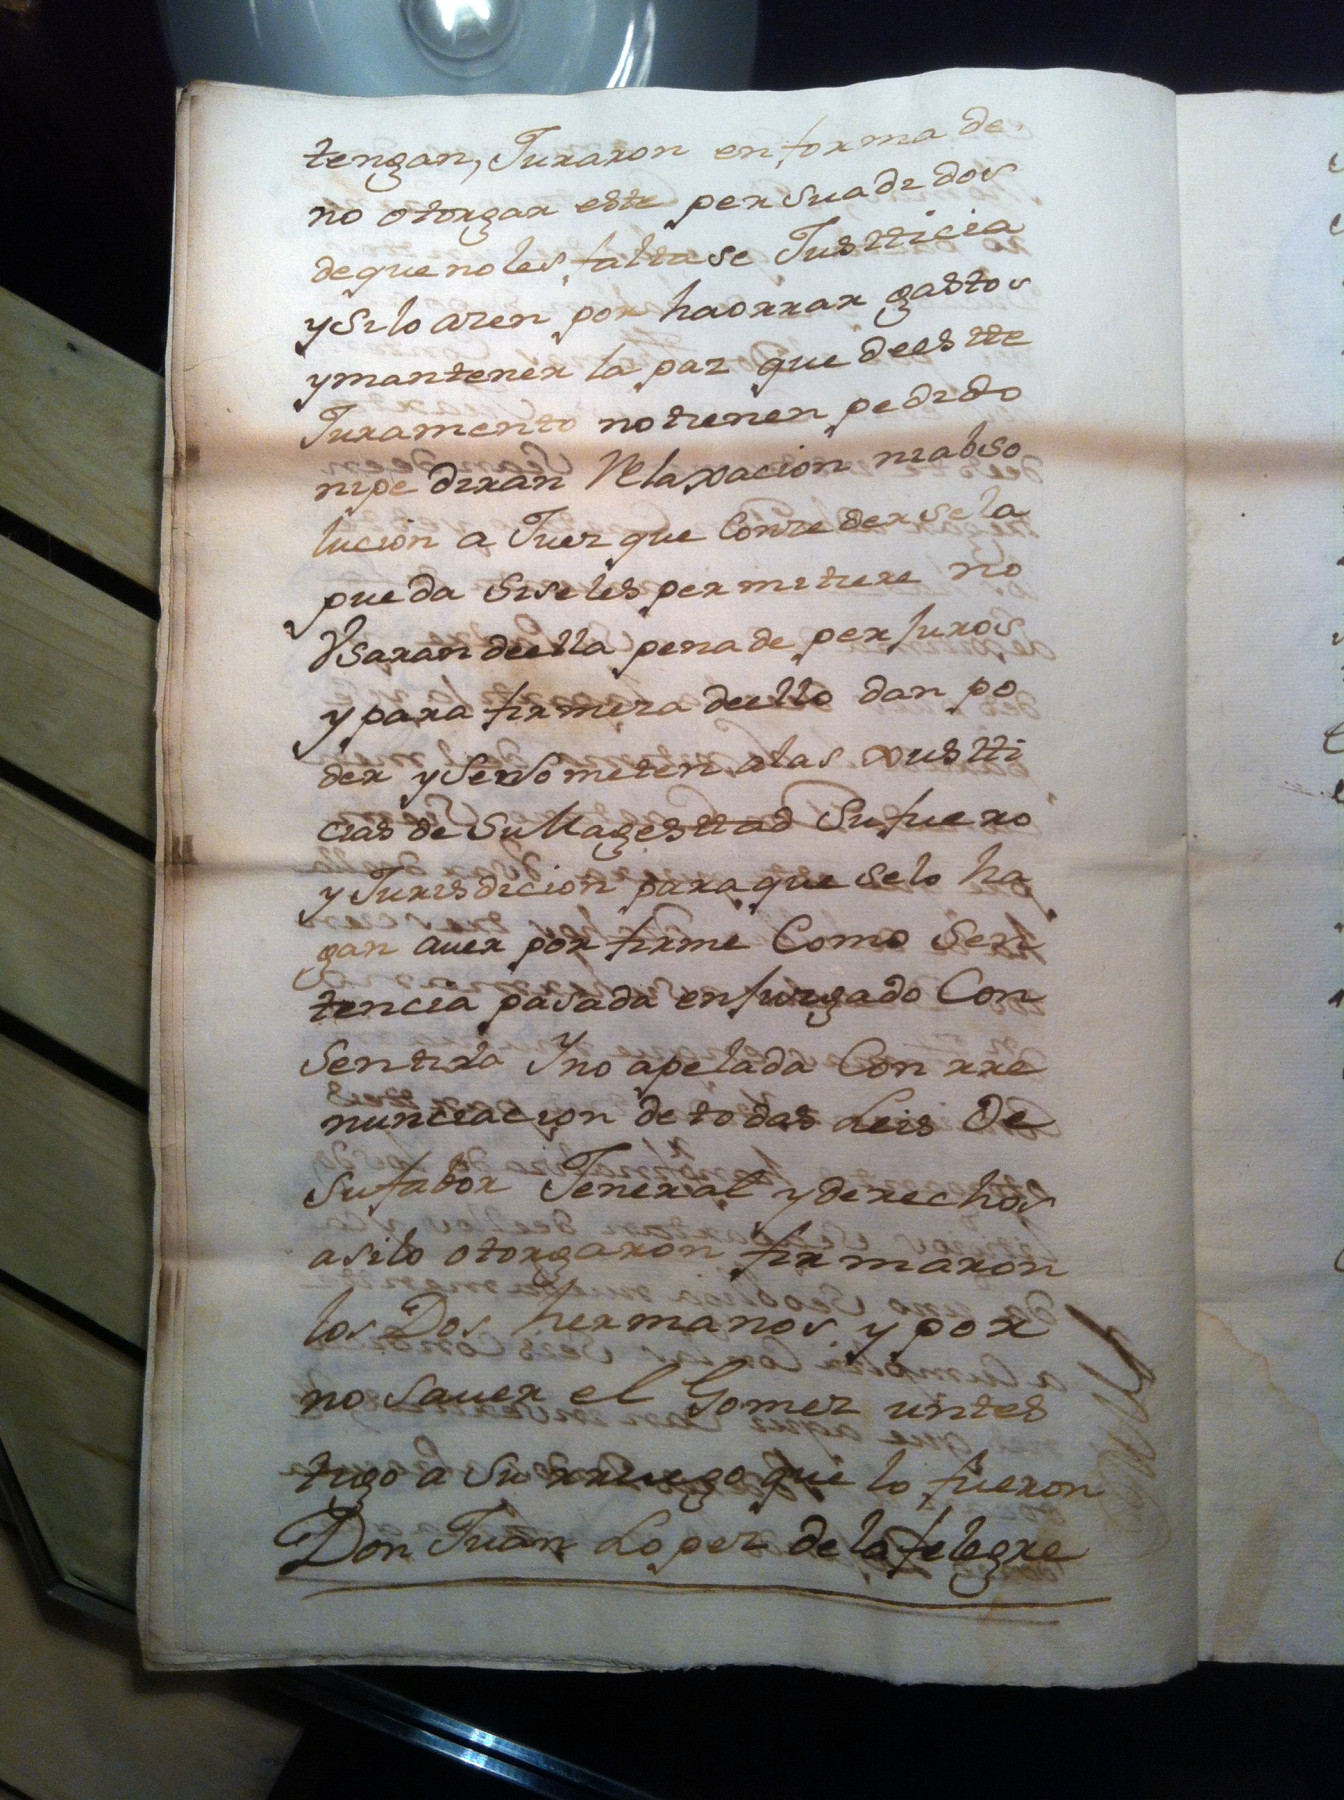 tengan, Juraron en forma de
no otorgar este persuadidos
de que no les faltase Justticia
y silo azen por haorrar gastos
y mantener la paz que deestte
Juramento no tienen pedido
ni pediran Relaxacion ni abso
lucion a Juez que Conzederse la
pueda si se les permitiere no
Usaran deella pena de perjuros
y para firmeza deello dan po
der y se someten alas xustti
cias de su Magesttad su fuero
y Jurisdicion para que selo ha
gan auer por firme Como Sen
tencia pasada en juzgado Con
sentida Y no apelada Con rre
nunciacion de todas Leis de
su fabor Jeneral y derechos
asilo otorgaron firmaron
los Dos hermanos y por
no sauer el Gomez un tes
tigo a su rruego que lo fueron
Don Juan Lopez de la